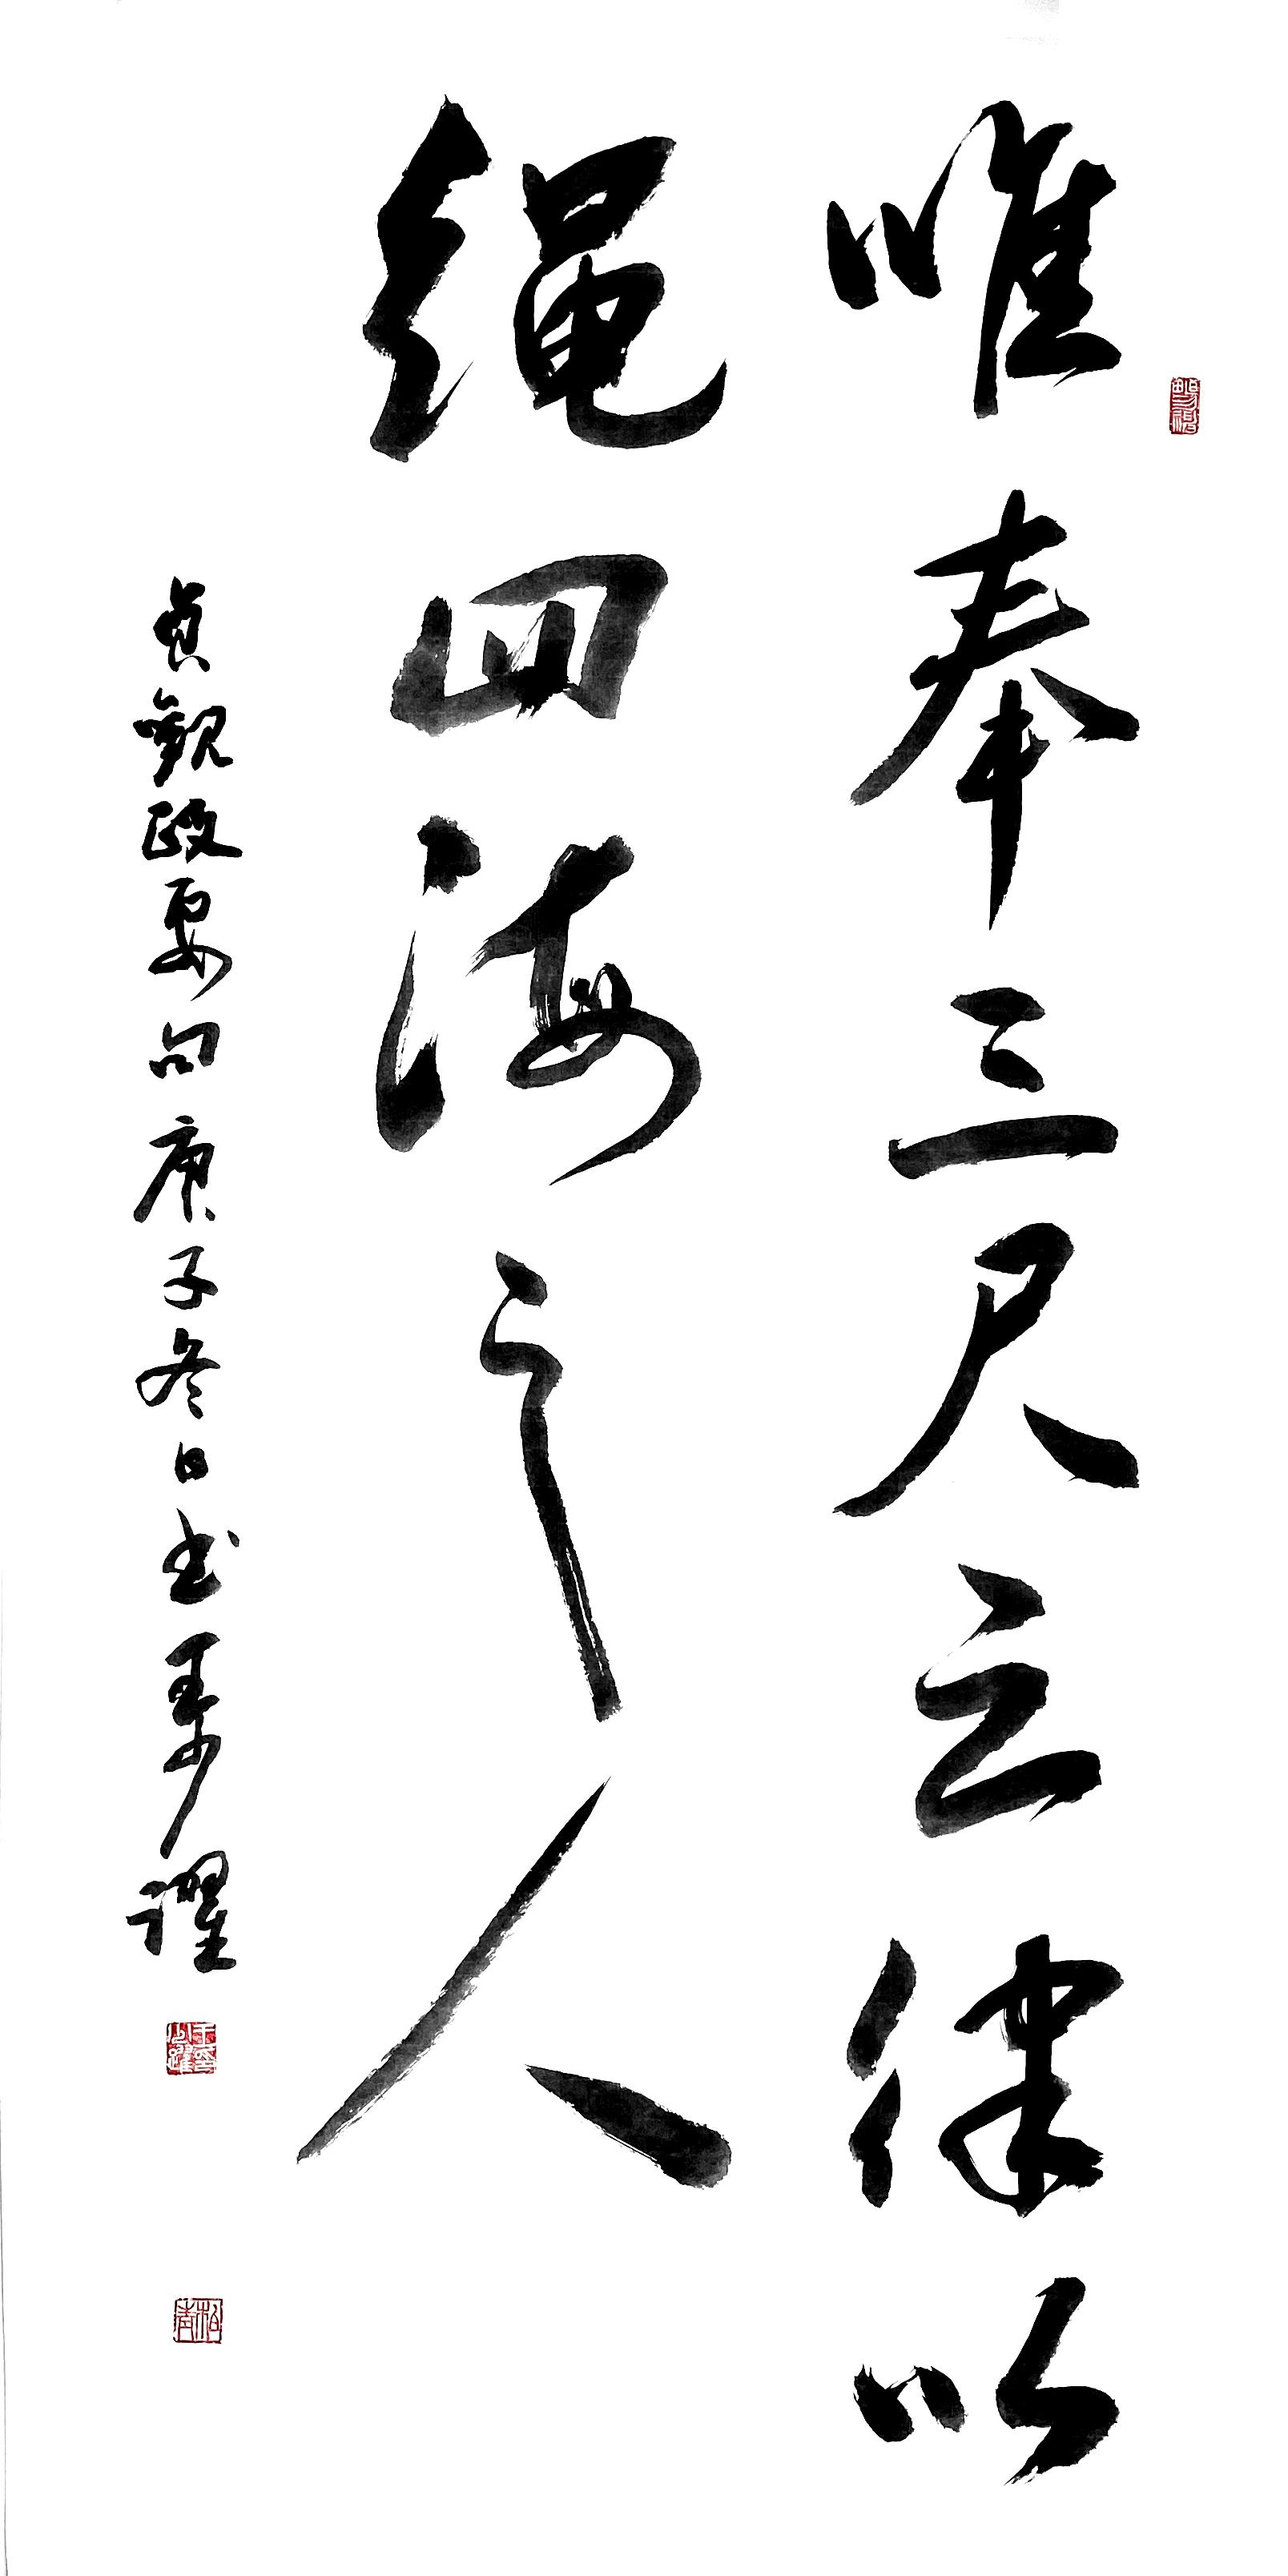 唯奉三尺之律以
绳四海之人
贞觀政要句庚子冬日书